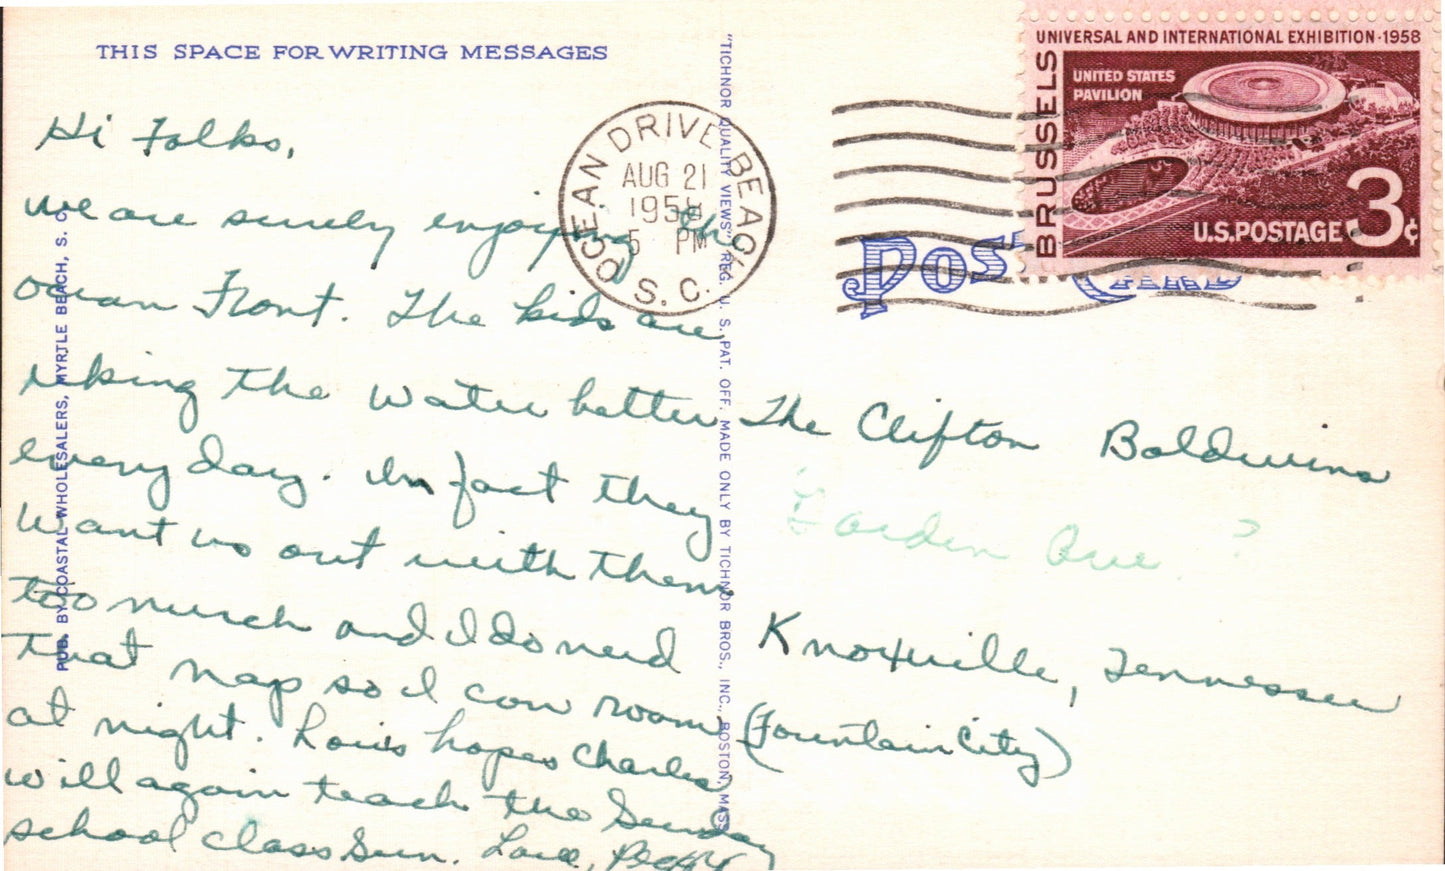 THIS SPACE FOR WRITING MESSAGES
Hi Folks,
we are surely enjoying the
ocean Front. The kids are
liking the water better
every day. In fact they
want us out with them
too much and I do need
that nap so I can room
at night. Louis hopes Charles
will again teach the Sunday
school class Sun. Love, Peggy
PUB. BY COASTAL WHOLESALERS, MYRTLE BEACH, S. C.
"TICHNOR QUALITY VIEWS" REG. U. S. PAT. OFF. MADE ONLY BY TICHNOR BROS., INC., BOSTON, MASS.
OCEAN DRIVE BEACH
AUG 21
1958
5 PM
S. C.
UNIVERSAL AND INTERNATIONAL EXHIBITION·1958
BRUSSELS
UNITED STATES
PAVILION
U.S. POSTAGE 3¢
POST CARD
The Clifton Baldwins
Garden Ave. ?
Knoxville, Tennessee
(Fountain City)